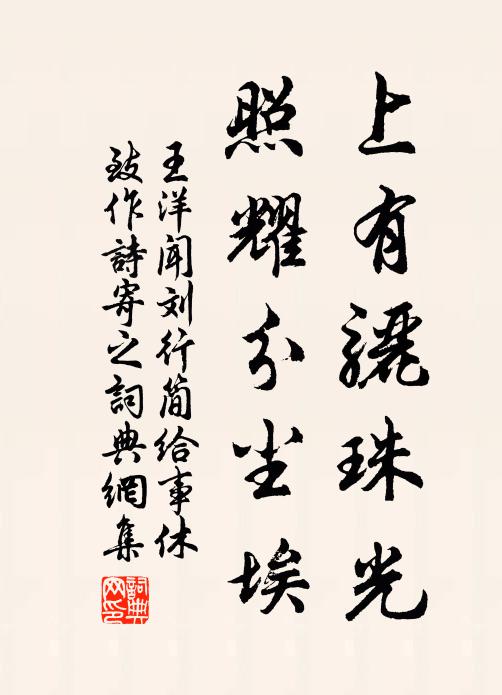 上有驪珠光
照耀分尘埃
王洋闻刘行简给事休
致作詩寄之詞典網集
詞典
网印